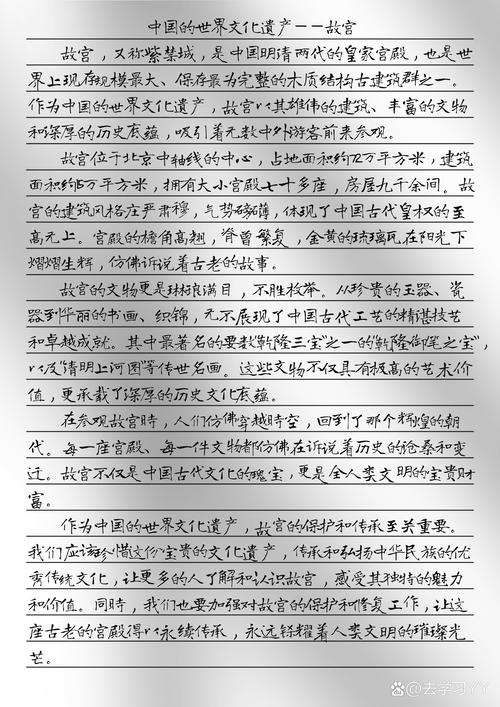 中国的世界文化遗产——故宫
故宫，又称紫禁城，是中国明清两代的皇家宫殿，也是世
界上现存规模最大、保存最为完整的木质结构古建筑群之一。
作为中国的世界文化遗产，故宫以其雄伟的建筑、丰富的文物
和深厚的历史底蕴，吸引着无数中外游客前来参观。
故宫位于北京中轴线的中心，占地面积约72万平方米，建筑
面积约15万平方米，拥有大小宫殿七十多座，房屋九千余间。故
宫的建筑风格庄严肃穆，气势磅薄，体现了中国古代皇权的至
高无上。宫殿的檐角高翘，脊曾繁复，金黄的琉璃瓦在阳光下
熠熠生辉，仿佛诉说着古老的故事。
故宫的文物更是琳琅满目，不胜枚举。从珍贵的玉器、瓷
器到华丽的书画、织锦，无不展现了中国古代工艺的精湛技艺
和卓越成就。其中最著名的要数“乾隆三宝”之一的“乾隆御笔之宝”，
以及“清明上河图”等传世名画。这些文物不仅具有极高的艺术价
值，更承载了深厚的历史文化底蕴。
在参观故宫时，人们仿佛穿越时空，回到了那个辉煌的朝
代。每一座宫殿、每一件文物都仿佛在诉说着历史的沧桑和变
迁。故宫不仅是中国古代文化的瑰宝，更是全人类文明的宝贵财
富。
作为中国的世界文化遗产，故宫的保护和传承至关重要。
我们应该珍惜这份宝贵的文化遗产，传承和弘扬中华民族的优
秀传统文化，让更多的人了解和认识故宫，感受其独特的魅力
和价值。同时，我们也要加强对故宫的保护和修复工作，让这
座古老的宫殿得以永续传承，永远铄耀着人类文明的璀璨光
芒。
@去学习丫丫